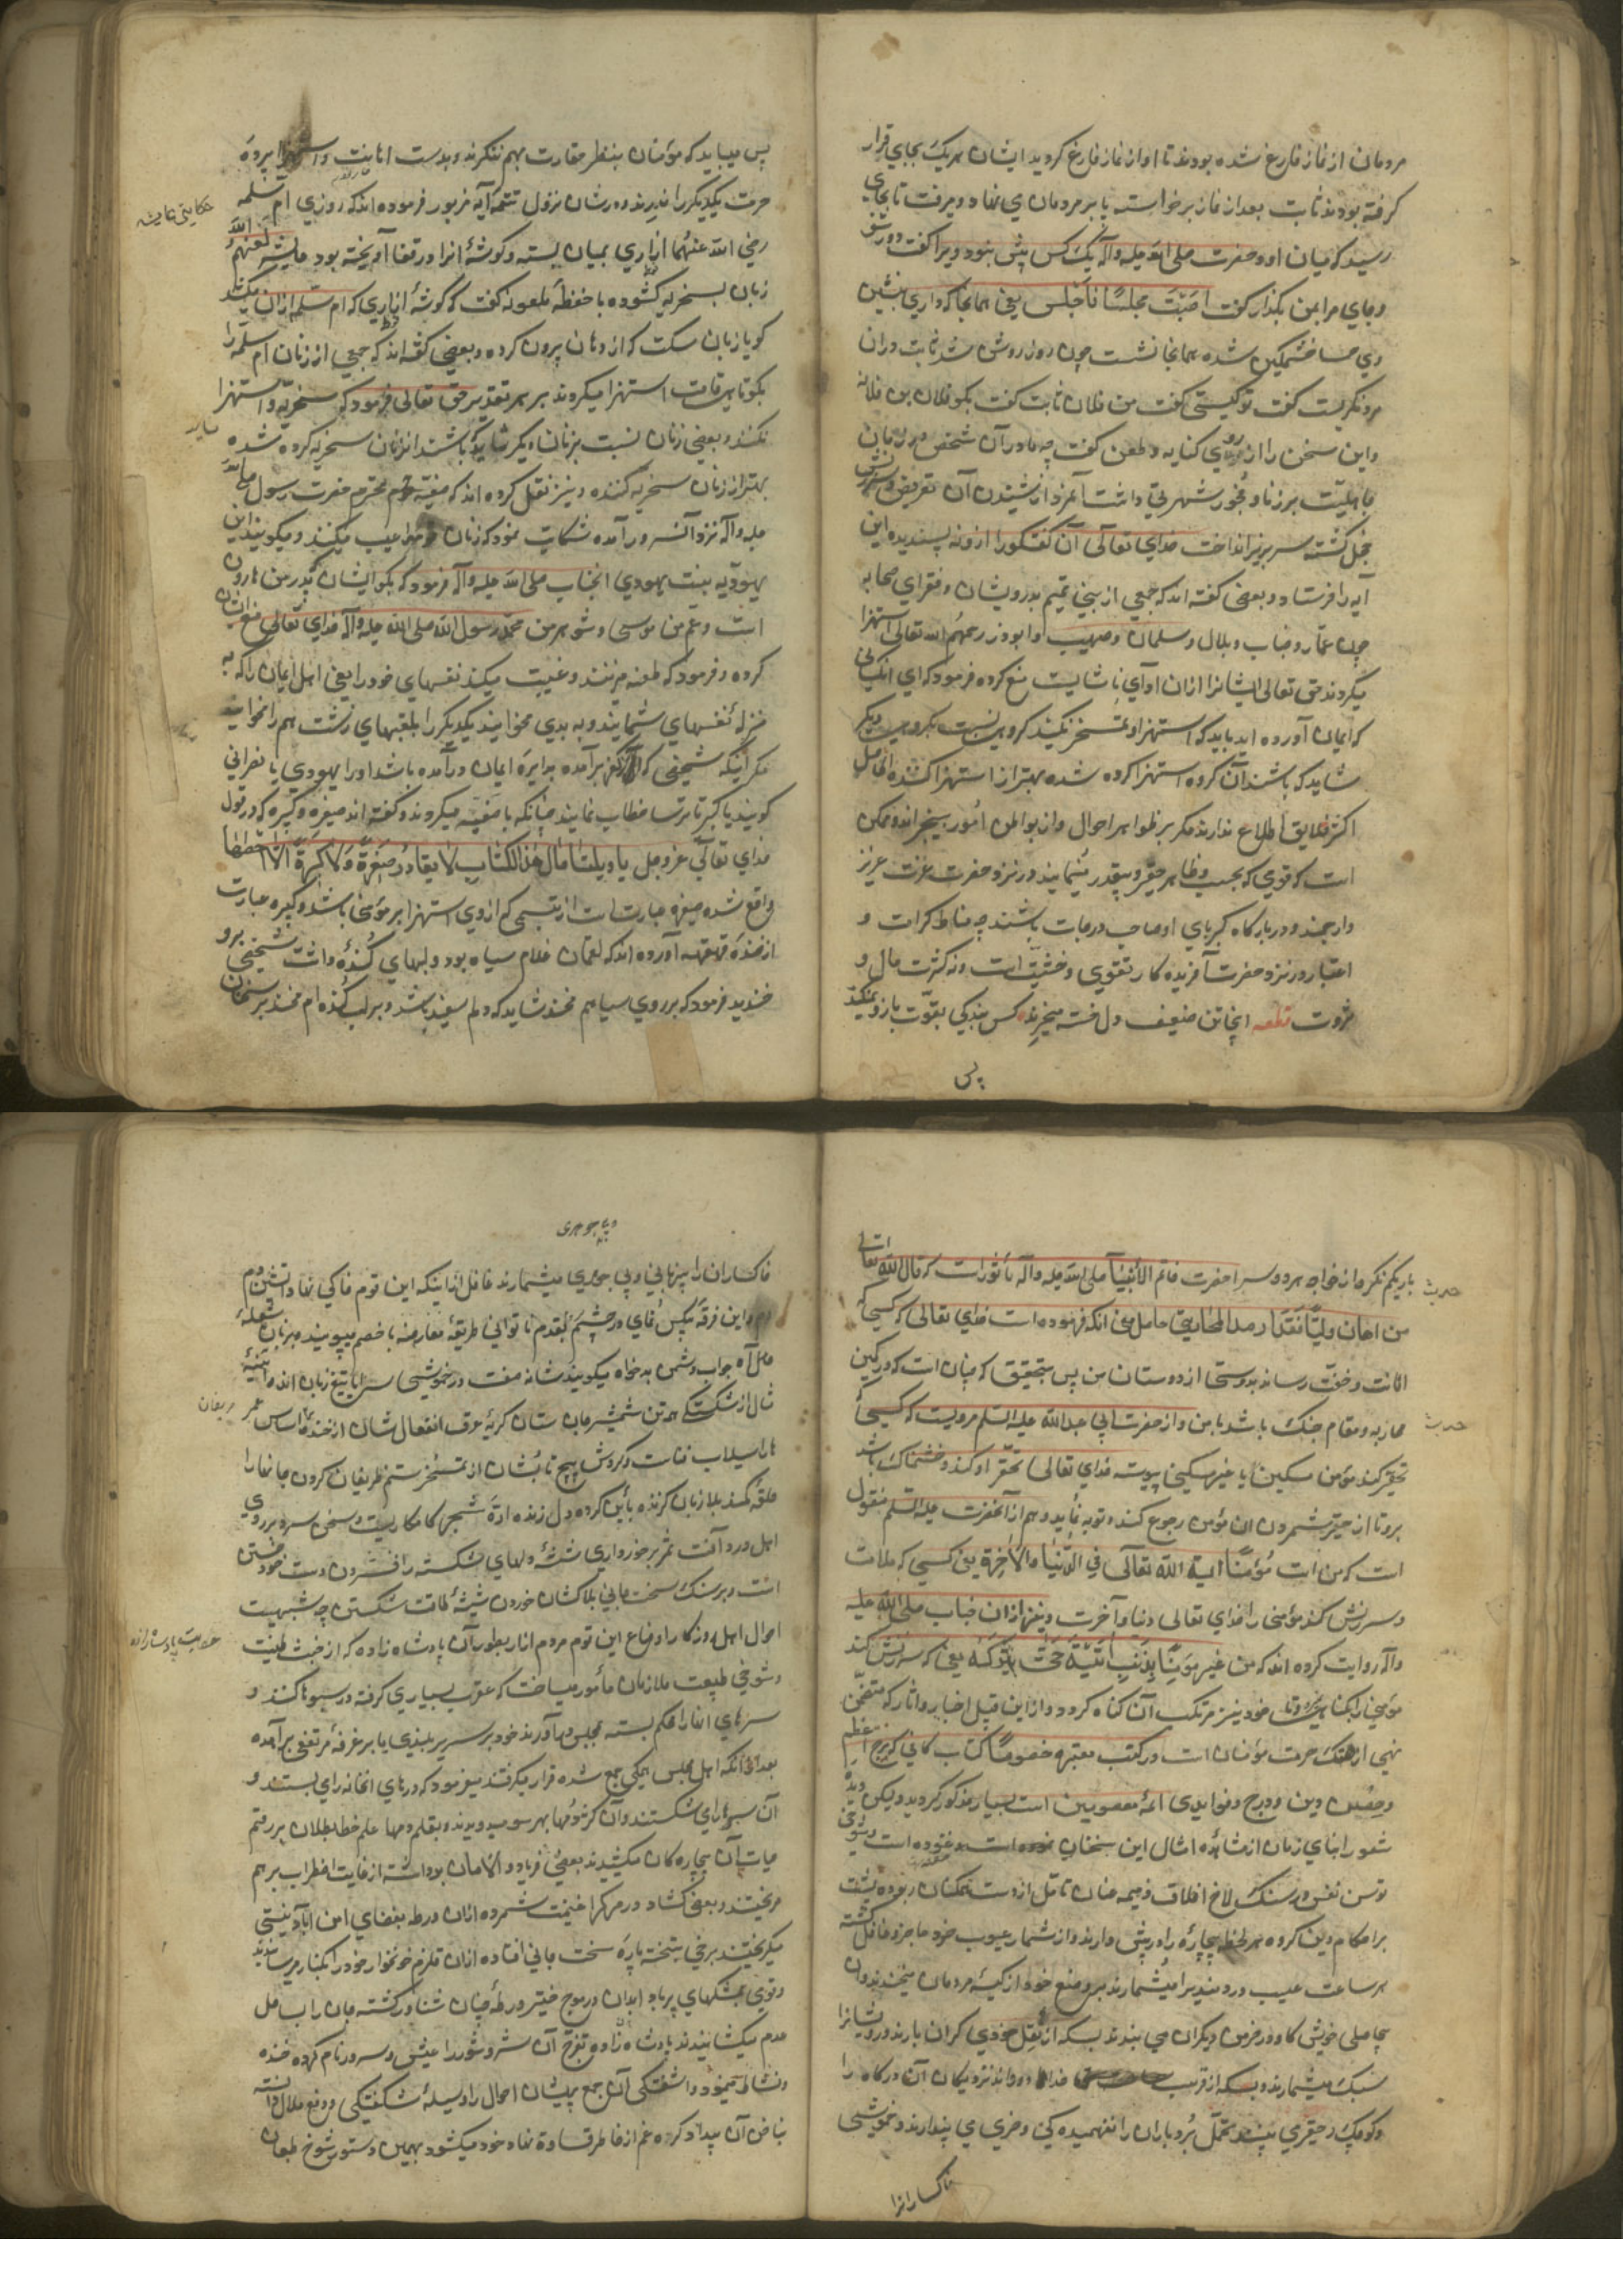 مردمان از نماز فارغ شده بودند تا او از نماز فارغ گردید ایشان هریک بجای قرار
گرفته بودند ثابت بعد از نماز برخواسته پا بر مردمان می نهاد و میرفت تا بجای
رسید که میان او و حضرت صلی الله علیه وآله یک کس بیش نبود ویرا گفت دور شو
و جای مرا بمن بگذار گفت اصبت مجلسًا فاجلس یعنی همانجا که داری بنشین
وی خشمگین شده همانجا نشست چون روز روشن شد ثابت دران
مرد نگریست گفت تو کیستی گفت من فلان ثابت گفت بکو فلان بن فلانه
و این سخن را از روی کنایه و طعن گفت چه مادر آن شخص در زمان
جاهلیت بر زنا و فجور شهرتی داشت آنمرد از شنیدن آن تعریض و سرزنش
خجل گشته سر بزیر انداخت خدای تعالی آن گفتگو را ازو نه پسندیده این
آیه را فرستاد و بعضی گفته اند که جمعی از بنی تمیم بدرویشان و فقرای صحابه
چون عمّار و خباب و بلال و سلمان و صهیب و ابوذر رحمهم الله تعالی استهزا
میکردند حق تعالی ایشانرا ازان ادای ناشایست منع کرده فرمود که ای انکسانی
که ایمان آورده اید باید که استهزا و تمسخر نکنند گروهی نسبت بگروهی دیگر
شاید که باشند آن گروه استهزا کرده شده بهتر از استهزا کننده الحاصل
اکثر خلایق اطلاع ندارند مگر بر ظواهر احوال و از بواطن امور بیخبراند و ممکن
است که قومی که بحسب ظاهر حقیر و بیقدر مینمایند در نزد حضرت عزت عزیز
و ارجمند و در بارگاه کبریای او صاحب درجات باشند چه مناط کرامت و
اعتبار در نزد حضرت آفریدگار تقوی و خشیّت است و نه کثرت مال و
ثروت قطعه اینجا تن ضعیف و دل خسته میخرند کس بندگی بقوّت بازو نمیکند
پس
پس میباید که مؤمنان بنظر حقارت بهم ننگرند و بدست اهانت و استهزا پرده
حرمت یکدیگر را ندرند و در شان نزول تتمه آیه مزبور فرموده اند که روزی ام سلمه
حکایت عایشه
رضی الله عنهما ازاری بمیان بسته و گوشهٔ انرا در قفا آویخته بود عایشه
زبان بسخریه گشوده با حفظه ملعونه گفت که گوشهٔ ازاری که ام سلمه ازان میکشد
گویا زبان سگست که از دهان بیرون کرده و بعضی گفته اند که جمعی از زنان ام سلمه را
بکوتاهی قامت استهزا میکردند بر هر تقدیر حق تعالی فرمود که سخریه و استهزا
نکنند و بعضی زنان نسبت بزنان دیگر شاید که باشند انزنان سخریه کرده شده
بهتر از زنان سخریه کننده و نیز نقل کرده اند که صفیّه حرم محترم حضرت رسول صلی الله
علیه وآله نزد آنسرور آمده شکایت نمود که زنان مرا عیب میکنند و میگویند این
یهودیه بنت یهودی انجناب صلی الله علیه وآله فرمود که بگو ایشان که پدر من هارون
است و عم من موسی و شوهر من محمد رسول الله صلی الله علیه وآله خدای تعالی منع ایشان
کرده و فرمود که طعنه مزنند و غیبت میکنید نفسهای خود را یعنی اهل ایمان را که به
منزلهٔ نفسهای شمایند و به بدی مخوانید یکدیگر را بلقبهای زشت هم را مخوانید
مگر آنکه شخصی که از کفر برآمده بدایرهٔ ایمان درآمده باشد اورا یهودی یا نصرانی
گویند یا گبر تا ترسا خطاب نمایند چنانکه با صفیّه میکردند و گفته اند صغیره و کبیره که در قول
خدای تعالی عز و جل یا ویلتنا مال هذا الکتاب لا یغادر صغیرة ولا کبیرة الا احصها
واقع شده صغیره عبارت است از تبسمی که از روی استهزا بر مؤمنی باشد و کبیره عبارت
از خندهٔ قهقهه آورده اند که لقمان غلام سیاه بود و لبهای گنده داشت شخصی برو
خندید فرمود که بر روی سیاهم مخند شاید که دلم سفید باشد و بر لب گنده ام مخند بر سخنان
حدیث
باریکم نگر و از خواجه هر دو سرا حضرت خاتم الانبیا صلی الله علیه وآله مأثور است که قال الله تعالی
من اهان ولیًّا فقد ارصد المحاربتی حاصل معنی انکه فرموده است خدای تعالی که کسی که
اهانت و خفّت رساند بدوستی از دوستان من پس بتحقیق که چنان است که در کمین
حدیث
محاربه و مقام جنگ باشد با من و از حضرت ابی عبدالله علیه السلم مرویست که کسی که
تحقیر کند مؤمن مسکین یا غیر مسکینی پیوسته خدای تعالی تحقیر او کند و خشمناک باشد
برو تا از حقیر شمردن ان مؤمن رجوع کند و توبه نماید و هم از آنحضرت علیه السلم منقول
است که من انب مؤمنًا انبه الله تعالی فی الدنیا والاخرة یعنی کسی که ملامت
و سرزنش کند مؤمنی را خدای تعالی دنیا و آخرت و نیز ازان جناب صلی الله علیه
وآله روایت کرده اند که من عیر مؤمنًا بذنب لم یمت حتی یرتکبه یعنی که سرزنش کند
مؤمنی را بگناهی خود نیز مرتکب آن گناه گردد و ازین قبیل اخبار و اثار که متضمن
نهی از هتک حرمت مؤمنان است در کتب معتبره خصوصًا کتاب کافی که برج اعظم
و حصین دین و درج فواید ائمهٔ معصومین است بسیار مذکور گردید و لیکن دیدهٔ
شعور ابنای زمان از مشاهدهٔ امثال این سخنان غنوده است و شوخی
توسن نفس در سنگ لاخ اخلاق ذمیمه عنان تأمل از دست همگنان ربوده پشت
بر احکام دین کرده هر لحظه بیچارهٔ را در پیش دارند و از شمار عیوب خود عاجز و غافل گشته
هر ساعت عیب دردمندیرا میشمارند بر وضع خود از کیسهٔ مردمان میخندند و از
بیحاصلی خویش گاو در خرمن دیگران می بندند بسکه از ثقل خودی گران بارند درویشانرا
سبک میشمارند و بسکه از قرب خدا دوراند نزدیکان آن درگاه را
کوچک و حقیری بینند تحمّل بردباران را نفهمیدهٔ کی و خری می پندارند و خموشی
خاکسارانرا
و بی جوهری
خاکساران را بی زبانی و بی جوهری میشمارند غافل از اینکه این قوم خاکی نهاد
و این فرقهٔ بیکس نمای در چشم بقدم ناتوانی طریقهٔ معارضه با خصم میپویند و بزبان شعلهٔ
آه جواب دشمن بدخواه میگویند شانه صفت در خموشی سراپا تیغ زبان اند و آیینه
مثال از شکستگی همه تن شمشیر جان ستان گریهٔ عرق انفعال شان از خنده اساس عمر
حریفان
را سیلاب فناست و گردش پیچ تابشان از تمسخر ستم ظریفان گردن جانها را
حلقهٔ کمند بلا زبان گزنده بأین کرده دل زنده ادهٔ شجر کامکاریست و سخن سرد بر روی
اهل درد آفت ثمر برخورداری شیشهٔ دلهای شکسته را فشردن دست خود خستن
است و بر سنگ سخت جانی بلاکشان خوردن شیشهٔ طاقت شکستن چه شبهیست
حکایت پادشاهزاده
احوال اهل روزگار و اوضاع این قوم مردم ازار بطور آن پادشاه زاده که از خبث طینت
و شوخی طبیعت ملازمان مأمور میساخت که عقرب بسیاری گرفته در سبوها کنند و
سرهای انها را محکم بسته بمجلس او آورند خود بر سریر بلندی یا بر غرفهٔ مرتفعی برآمده
بعد از آنکه اهل مجلس همگی جمع شده قرار میگرفتند میفرمود که درهای انخانه رای بستند و
آن سبوها رای شکستند و آن کژدمها بهر سو میدویدند و بقلم دمها علم خط بطلان بر رقم
حیات آن بیچارهگان میکشیدند بعضی فریاد و الامان برداشته از غایت اضطراب بر هم
میریختند و بعضی گشاد در مرگ را غنیمت شمرده ازان ورطه بفضای امن آباد نیستی
میگریختند برخی بتخته پارهٔ سخت جانی افتاده ازان قلزم خونخوار خود را بکنار میرسانیدند
و قومی بمشکهای پرباد ابدان در موج خیز ورطهٔ چنان شناور گشته جان را بساحل
عدم میکشانیدند پادشاه زاده تفرّج آن شر و شور را عیش و سرور نام کرده خنده
و نشاط مینمود و اشفتگی آن جمع پریشان احوال را وسیلهٔ شگفتگی و رفع ملال دانسته
بناخن آن بیداد گره غم از خاطر قساوة نهاد خود میگشود بهمین دستور شوخ طبعان